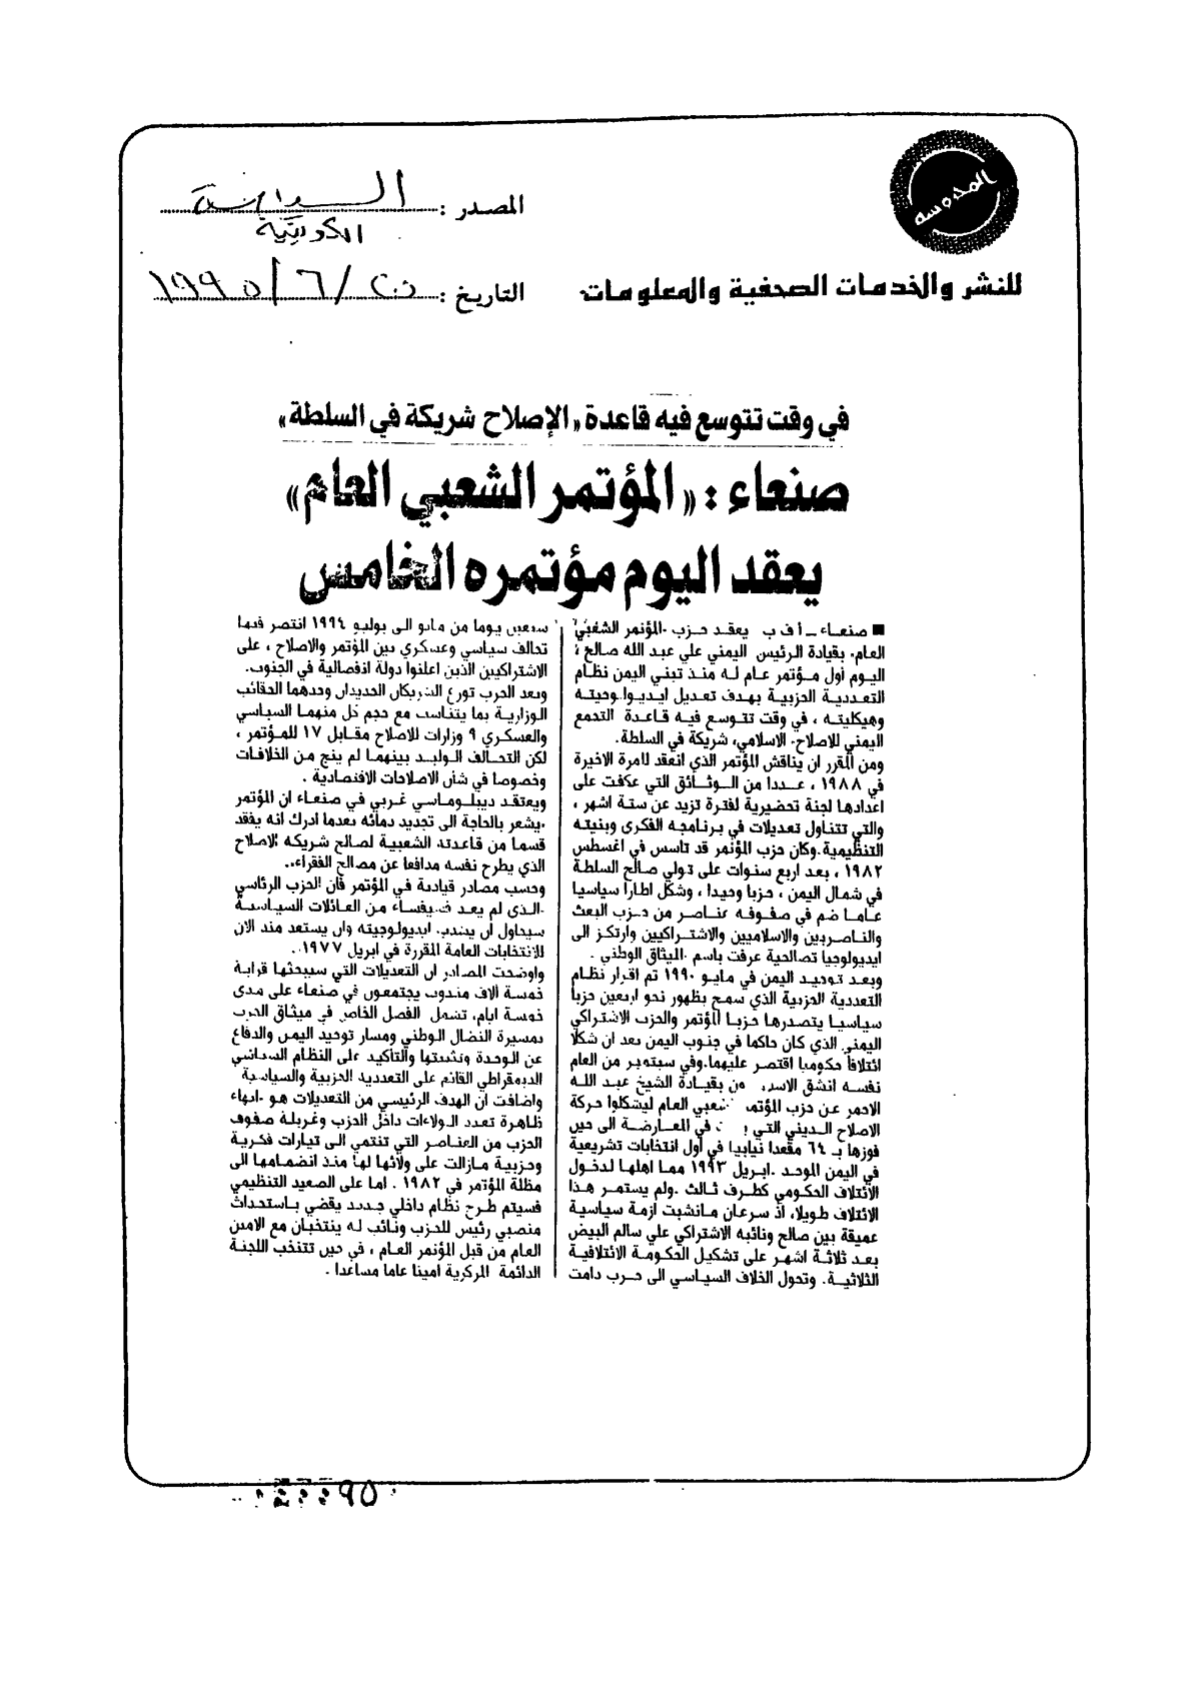 المحروسة
المصدر : السياسة
الكويتية
للنشر والخدمات الصحفية والمعلومات
التاريخ : ٢٥ / ٦ / ١٩٩٥
في وقت تتوسع فيه قاعدة «الإصلاح شريكة في السلطة»
صنعاء : «المؤتمر الشعبي العام»
يعقد اليوم مؤتمره الخامس
■ صنعاء – أ ف ب يعقد حزب .المؤتمر الشعبي
العام. بقيادة الرئيس اليمني علي عبد الله صالح
اليوم أول مؤتمر عام له منذ تبني اليمن نظام
التعددية الحزبية بهدف تعديل ايديولوجيته
وهيكليته ، في وقت تتوسع فيه قاعدة التجمع
اليمني للاصلاح. الاسلامي، شريكة في السلطة.
ومن المقرر ان يناقش المؤتمر الذي انعقد للمرة الاخيرة
في ١٩٨٨ ، عددا من الوثائق التي عكفت على
اعدادها لجنة تحضيرية لفترة تزيد عن ستة اشهر ،
والتي تتناول تعديلات في برنامجه الفكرى وبنيته
التنظيمية.وكان حزب المؤتمر قد تاسس في اغسطس
١٩٨٢ ، بعد اربع سنوات على تولي صالح السلطة
في شمال اليمن ، حزبا وحيدا ، وشكل اطارا سياسيا
عاما ضم في صفوفه عناصر من حزب البعث
والناصريين والاسلاميين والاشتراكيين وارتكز الى
ايديولوجيا تصالحية عرفت باسم .الميثاق الوطني .
وبعد توحيد اليمن في مايو ١٩٩٠ تم اقرار نظام
التعددية الحزبية الذي سمح بظهور نحو اربعين حزبا
سياسيا يتصدرها حزبا المؤتمر والحزب الاشتراكي
اليمني. الذي كان حاكما في جنوب اليمن بعد ان شكلا
ائتلافا حكوميا اقتصر عليهما.وفي سبتمبر من العام
نفسه انشق بقيادة الشيخ عبد الله
الاحمر عن حزب المؤتمر الشعبي العام ليشكلوا حركة
الاصلاح الديني التي في المعارضة الى حين
فوزها بـ ٦٤ مقعدا نيابيا في أول انتخابات تشريعية
في اليمن الموحد .ابريل ١٩٩٣ مما اهلها لدخول
الائتلاف الحكومي كطرف ثالث .ولم يستمر هذا
الائتلاف طويلا، اذ سرعان مانشبت ازمة سياسية
عميقة بين صالح ونائبه الاشتراكي علي سالم البيض
بعد ثلاثة اشهر على تشكيل الحكومة الائتلافية
الثلاثية. وتحول الخلاف السياسي الى حرب دامت
سبعين يوما من مايو الى يوليو ١٩٩٤ انتصر فيها
تحالف سياسي وعسكري بين المؤتمر والاصلاح ، على
الاشتراكيين الذين اعلنوا دولة انفصالية في الجنوب.
وبعد الحرب توزع الشريكان الجديدان وحدهما الحقائب
الوزارية بما يتناسب مع حجم كل منهما السياسي
والعسكري ٩ وزارات للاصلاح مقابل ١٧ للمؤتمر ،
لكن التحالف الوليد بينهما لم ينج من الخلافات
وخصوصا في شأن الاصلاحات الاقتصادية .
ويعتقد ديبلوماسي غربي في صنعاء ان المؤتمر
.يشعر بالحاجة الى تجديد دمائه بعدما ادرك انه يفقد
قسما من قاعدته الشعبية لصالح شريكه الاصلاح
الذي يطرح نفسه مدافعا عن مصالح الفقراء..
وحسب مصادر قيادية في المؤتمر فان الحزب الرئاسي
.الذى لم يعد فسيفساء من العائلات السياسية
سيحاول ان ايديولوجيته وان يستعد منذ الان
للانتخابات العامة المقررة في ابريل ١٩٧٧ .
واوضحت المصادر ان التعديلات التي سيبحثها قرابة
خمسة آلاف مندوب يجتمعون في صنعاء على مدى
خمسة ايام، تشمل الفصل الخاص في ميثاق الحزب
بمسيرة النضال الوطني ومسار توحيد اليمن والدفاع
عن الوحدة وتثبيتها والتأكيد على النظام السياسي
الديمقراطي القائم على التعددية الحزبية والسياسية
واضافت ان الهدف الرئيسي من التعديلات هو .انهاء
ظاهرة تعدد الولاءات داخل الحزب وغربلة صفوف
الحزب من العناصر التي تنتمي الى تيارات فكرية
وحزبية مازالت على ولائها لها منذ انضمامها الى
مظلة المؤتمر في ١٩٨٢ . اما على الصعيد التنظيمي
فسيتم طرح نظام داخلي جديد يقضي باستحداث
منصبي رئيس للحزب ونائب له ينتخبان مع الامين
العام من قبل المؤتمر العام ، في حين تنتخب اللجنة
الدائمة المركزية امينا عاما مساعدا .